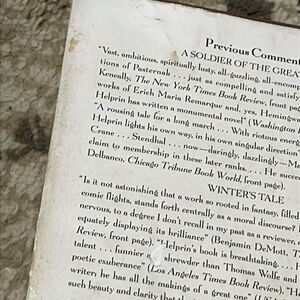 Previous Comment
A SOLDIER OF THE GREA
"Vast, ambitious, spiritually lusty, all-guzzling, all-encomp
tions of Pasternak . . . just as compelling and satisfy
Keneally, The New York Times Book Review, front pag
works of Erich Maria Remarque and, yes, Hemingwa
Helprin has written a monumental novel" (Washington
"A rousing tale for a long march. . . . With riotous energ
Helprin lights his own way, in his own singular direction"
Crane . . . Stendhal . . . now—daringly, dazzlingly—Ma
claim to membership in these later ranks. . . . He succe
Delbanco, Chicago Tribune Book World, front page).
WINTER'S TALE
"Is it not astonishing that a work so rooted in fantasy, filled
comic flights, stands forth centrally as a moral discourse?
nervous, to a degree I don't recall in my past as a reviewer,
equately displaying its brilliance" (Benjamin DeMott, T
Review, front page). "Helprin's book is breathtaking. . . .
talent . . . funnier &. shrewder than Thomas Wolfe and
poetic exuberance" (Los Angeles Times Book Review). "He
writer; he has all the makings of a great one"
such beauty and clarity that